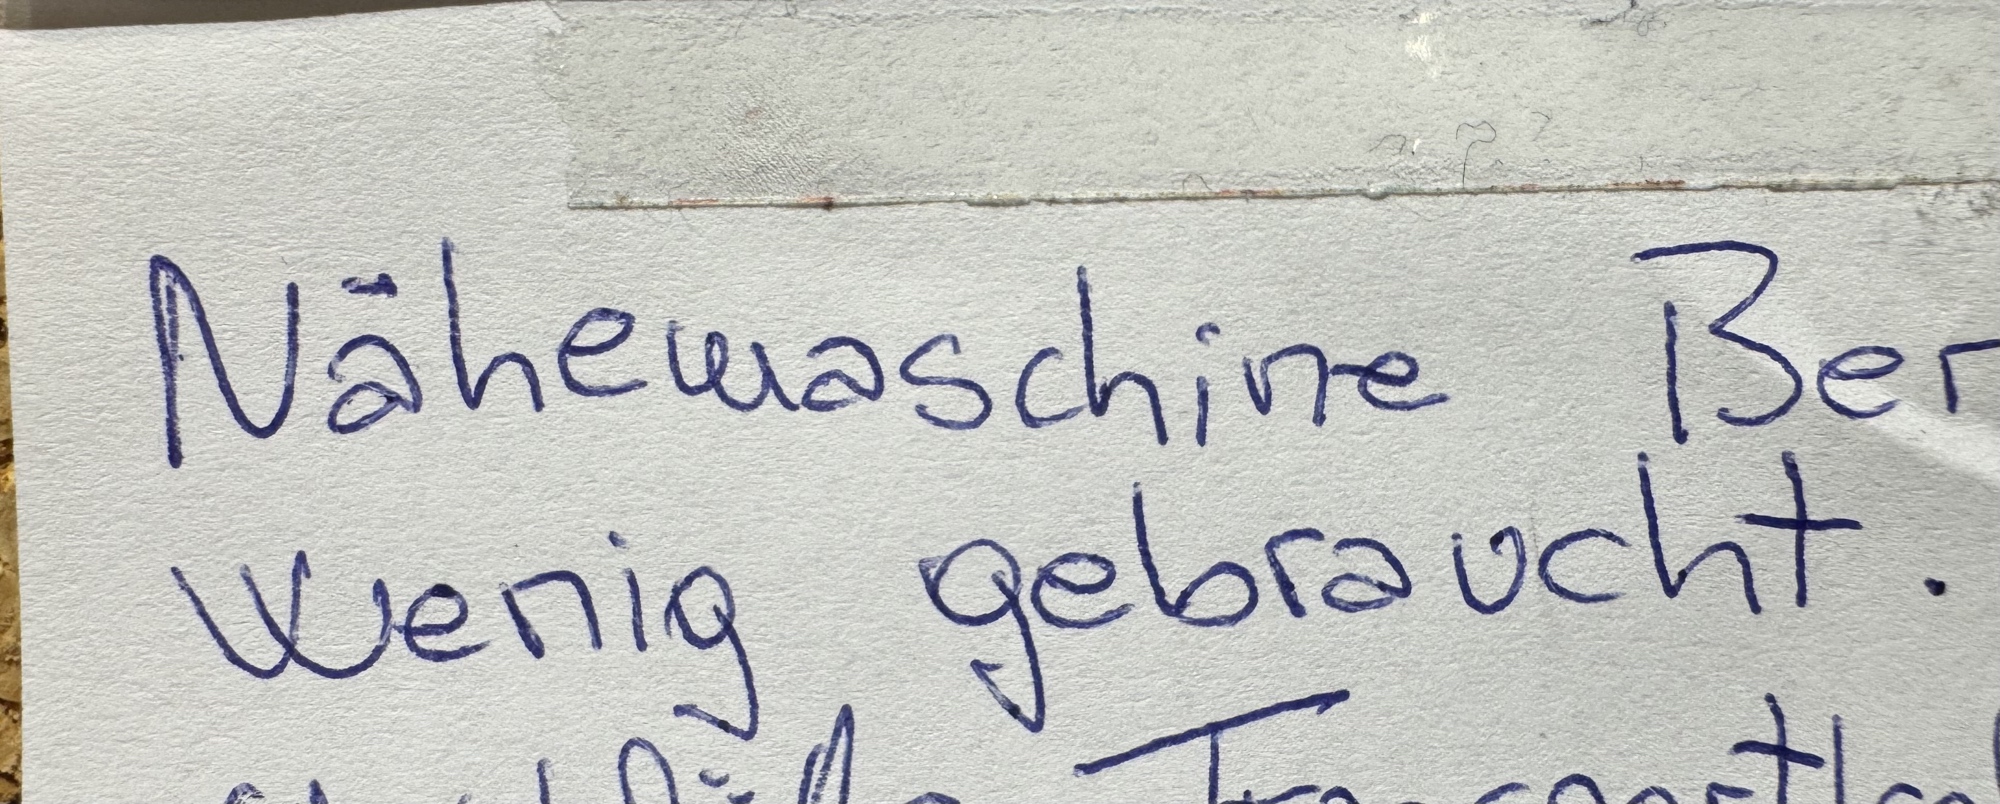 Nähemaschine Ber
wenig gebraucht.